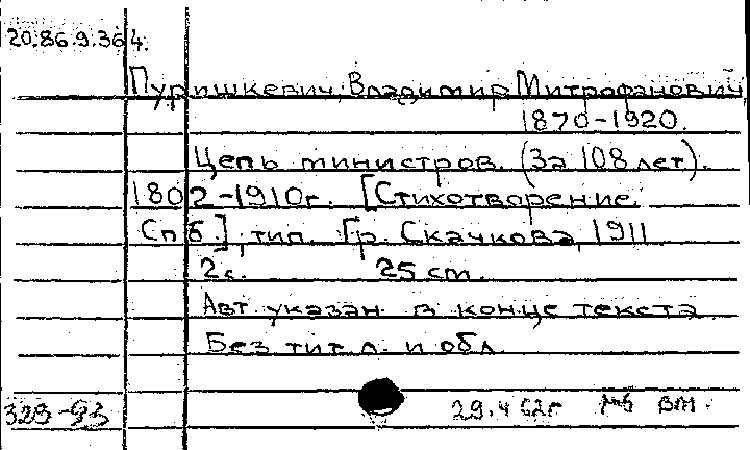 20.86.9.364.
Пуришкевич, Владимир Митрофанович,
1870-1920.
Цепь министров. (За 108 лет).
1802-1910г. [Стихотворение.
Спб.], тип. Гр. Скачкова, 1911.
2с. 25 cm.
Авт. указан в конце текста.
Без тит. л. и обл.
29.4 62г